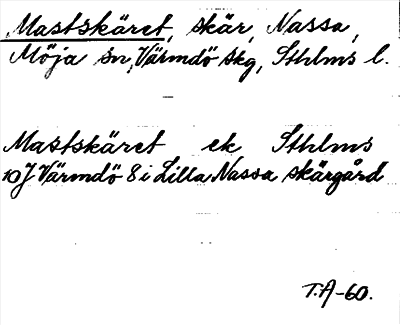 Mastskäret, skär, Nassa,
Möja sn, Värmdö skg, Sthlms l.
Mastskäret ek Sthlms
10J Värmdö 8 i Lilla Nassa skärgård
T.A-60.